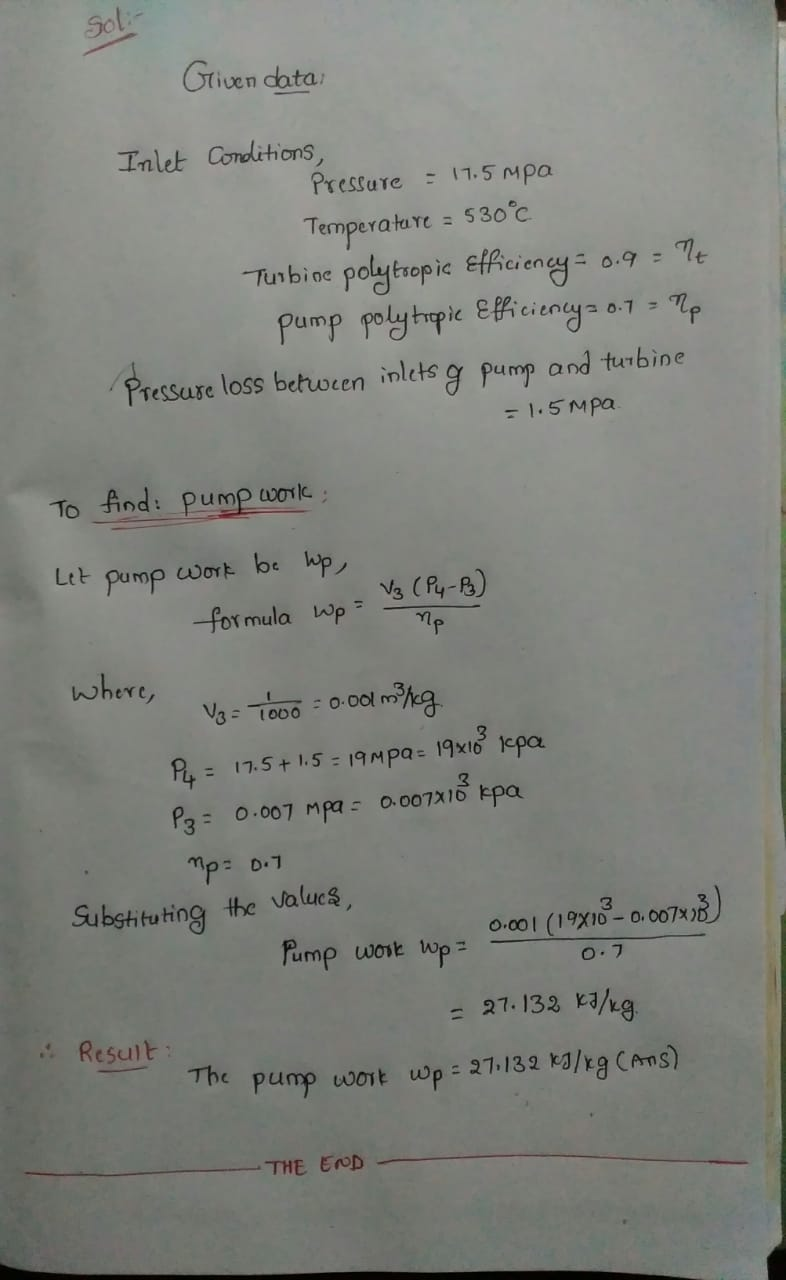 Sol:-
Given data:
Inlet Conditions,
Pressure = 17.5 Mpa
Temperature = 530°C
Turbine polytropic Efficiency = 0.9 = ηt
pump polytropic Efficiency = 0.7 = ηp
Pressure loss between inlets of pump and turbine
= 1.5 Mpa
To find: pump work:
Let pump work be Wp,
formula Wp = V3 (P4-P3) / ηp
Where,
V3 = 1/1000 = 0.001 m³/kg.
P4 = 17.5 + 1.5 = 19 Mpa = 19×10³ kpa
P3 = 0.007 Mpa = 0.007×10³ kpa
ηp = 0.7
Substituting the values,
Pump work Wp = 0.001 (19×10³ - 0.007×10³) / 0.7
= 27.132 kJ/kg.
∴ Result:
The pump work Wp = 27.132 kJ/kg (Ans)
THE END